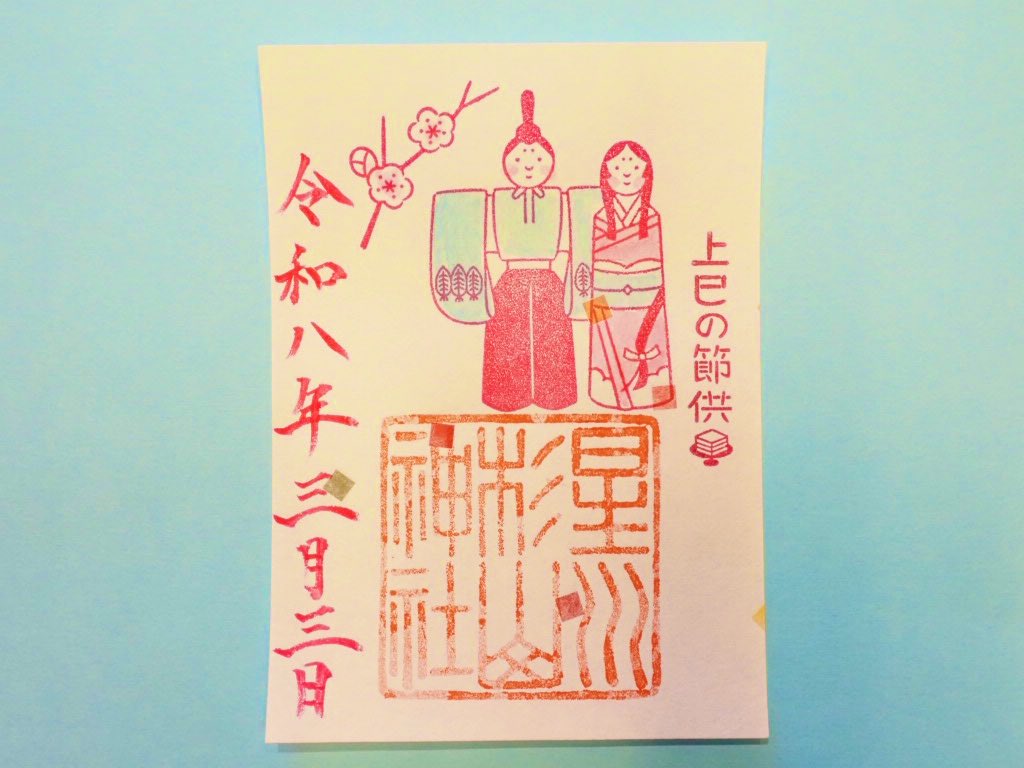 上巳の節供
星川
杉山
神社
令和八年三月三日